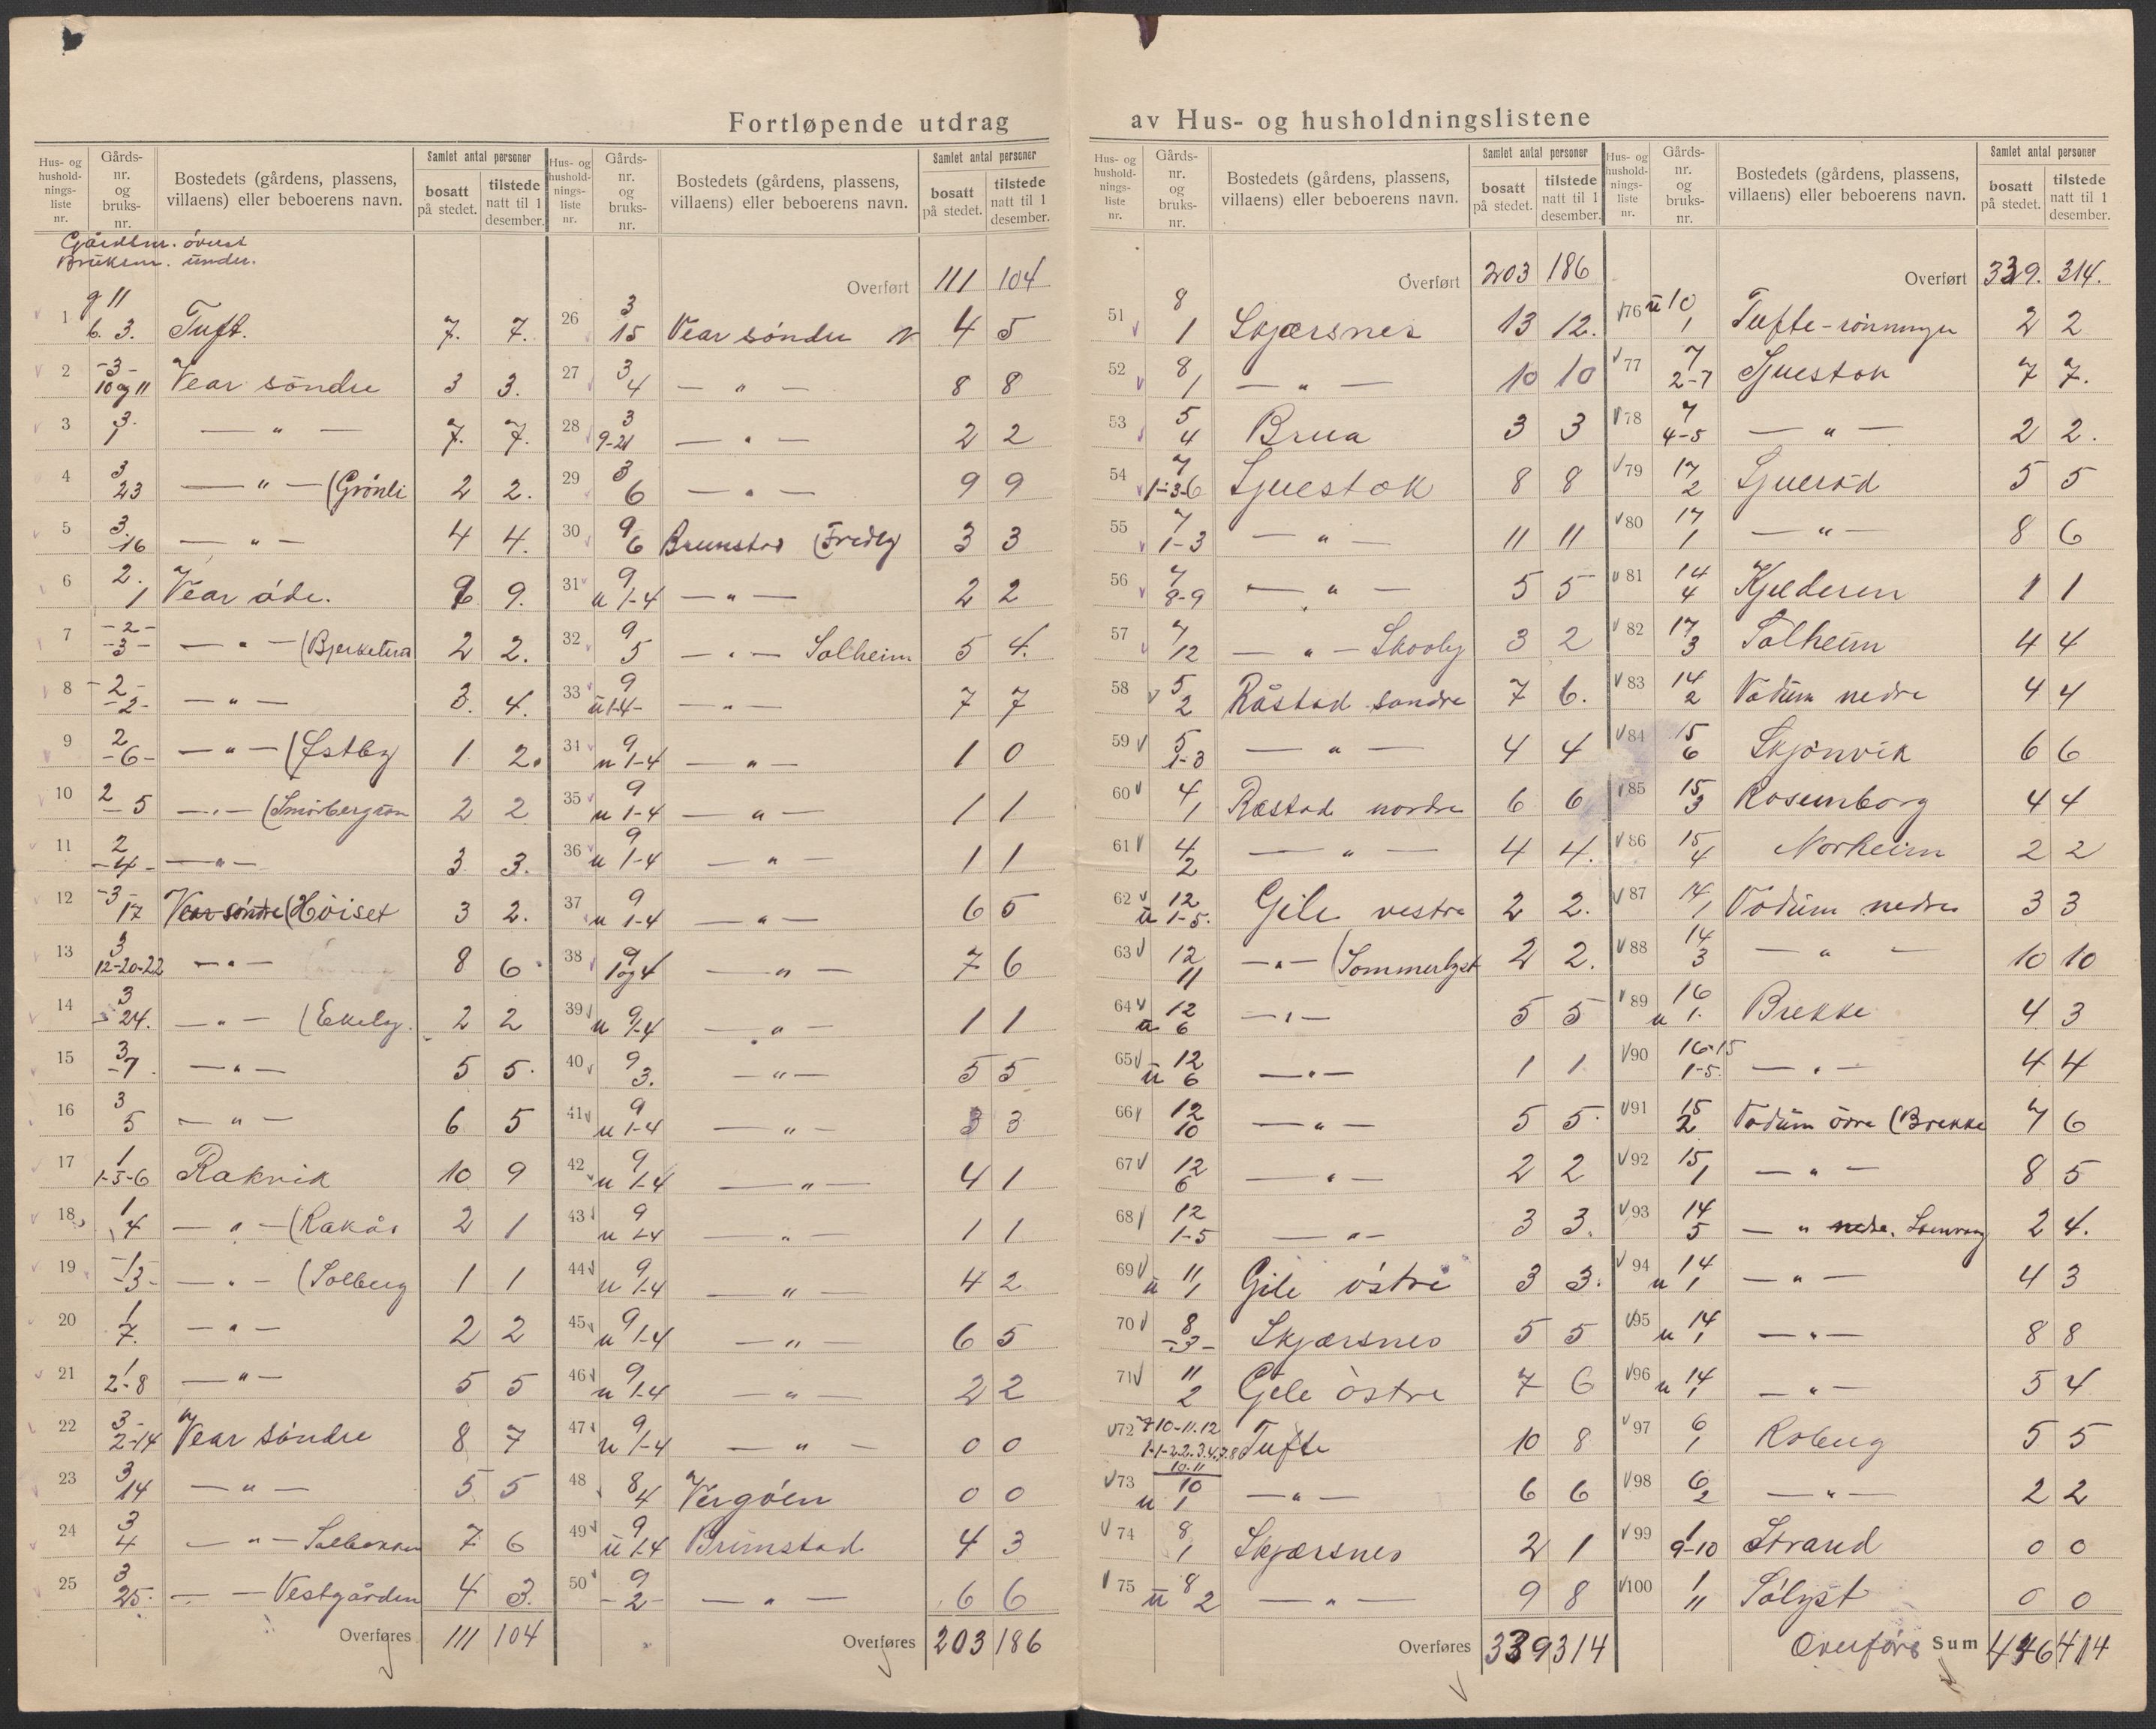 Fortløpende utdrag av Hus- og husholdningslistene
Hus- og hushold-nings-liste nr. Gårds-nr. og bruks-nr. Bostedets (gårdens, plassens, villaens) eller beboerens navn. Samlet antal personer bosatt på stedet. tilstede natt til 1 desember.
Gårdsnr. øverst
Bruksnr. under.
1 g 11 b. 3. Tuft. 7. 7.
2 -3- 10 og 11 Vear söndre 3 3.
3 3. 1 — " — 7. 7.
4 3 23 — " — (Grönli 2 2.
5 3. 16 — " — 4 4.
6 2. 1 Vear öde. 9 9.
7 -2- -3- — " — (Bjerketun 2 2.
8 -2- -2- — " — 3. 4.
9 2 -6- — " — (Östby 1 2.
10 2 5 — " — (Smörbergton 2 2
11 2 -4- — " — 3 3.
12 -3- 17 Vear söndre (Höiset 3 2.
13 3 12-20-22 — " — 8 6
14 3 24. — " — (Ekely. 2 2
15 3 7 — " — 5 5.
16 3 5 — " — 6 5
17 1 1-5-6 Rakvik 10 9
18 1 4 — " — (Rakås 2 1
19 1 -3- — " — (Solberg 1 1
20 1 7. — " — 2 2
21 1 2-8 — " — 5 5
22 3- 2-14 Vear söndre 8 7
23 3 14 — " — 5 5
24 3 4 — " — Solbakken 7 6
25 3 25. — — Vestgården 4 3.
Overføres 111 104
Hus- og hushold-nings-liste nr. Gårds-nr. og bruks-nr. Bostedets (gårdens, plassens, villaens) eller beboerens navn. Samlet antal personer bosatt på stedet. tilstede natt til 1 desember.
Overført 111 104
26 3 15 Vear söndre N 4 5
27 3 4 — " — 8 8
28 3 9-21 — " — 2 2
29 3 6 — " — 9 9
30 9 6 Brunstad (Fredly 3 3
31 9 u 1-4 — " — 2 2
32 9 5 — " — Solheim 5 4.
33 9 u 1-4- — " — 7 7
34 9 u 1-4 — " — 1 0
35 9 u 1-4 — " — 1 1
36 9 u 1-4 — " — 1 1
37 9 u 1-4 — " — 6 5
38 9 1 og 4 — " — 7 6
39 9 u 1-4 — " — 1 1
40 9 3. — " — 5 5
41 9 u 1-4 — " — 3 3
42 9 u 1-4 — " — 4 1
43 9 u 1-4 — " — 1 1
44 9 u 1-4 — " — 4 2
45 9 u 1-4 — " — 6 5
46 9 u 1-4 — " — 2 2
47 9 u 1-4 — " — 0 0
48 8 4 Vergöen 0 0
49 9 u 1-4 Brunstad 4 3
50 9 -2- — " — 6 6
Overføres 203 186
Hus- og hushold-nings-liste nr. Gårds-nr. og bruks-nr. Bostedets (gårdens, plassens, villaens) eller beboerens navn. Samlet antal personer bosatt på stedet. tilstede natt til 1 desember.
Overført 203 186
51 8 1 Skjærsnes 13 12.
52 8 1 — " — 10 10
53 5 4 Brua 3 3
54 7 1-3-6 Sjuestok 8 8
55 7 1-3 — " — 11 11
56 7 8-9 — " — 5 5
57 7 12 — " — Skogly 3 2
58 5 2 Råstad söndre 7 6.
59 5 1-3 — " — 4 4
60 4 1 Rastad nordre 6 6
61 4 2 — " — 4 4.
62 12 u 1-5. Gile vestre 2 2.
63 12 11 — " — (Sommerlyst 2 2.
64 12 u 6 — " — 5 5
65 12 u 6 — " — 1 1
66 12 10 — " — 5 5.
67 12 6 — " — 2 2
68 12 1-5 — " — 3 3.
69 11 u 1 Gile östre 3 3.
70 8 -3- Skjærsnes 5 5
71 11 2 Gile östre 7 6
72 7 10-11.12 1-1-2.2.3.4.7.8 10.11 Tufte 10 8
73 10 u 1 — " — 6 6
74 8 1 Skjærsnes 2 1
75 8 u 2 — " — 9 8
Overføres 339 314
Hus- og hushold-nings-liste nr. Gårds-nr. og bruks-nr. Bostedets (gårdens, plassens, villaens) eller beboerens navn. Samlet antal personer bosatt på stedet. tilstede natt til 1 desember.
Overført 339. 314.
76 u 10 1 Tufte-rönningen 2 2
77 7 2-7 Sjuestok 7 7.
78 7 4-5 — " — 2 2.
79 17 2 Sjueröd 5 5
80 17 1 — " — 8 6
81 14 4 Kjelderen 1 1
82 17 3 Solheim 4 4
83 14 2 Vodum nedre 4 4
84 15 6 Skjönvik 6 6
85 15 3 Rosenborg 4 4
86 15 4 Norheim 2 2
87 14 1 Vodum nedre 3 3
88 14 3 — " — 10 10
89 16 u 1. Brekke 4 3
90 16-15 1-5. — " — 4 4
91 15 2 Vodum övre (Brekke 7 6
92 15 1 — " — 8 5
93 14 5 — " nedre. 2 4.
94 14 u 1 — " — 4 3
95 14 u 1 — " — 8 8
96 14 u 1 — " — 5 4
97 6 1 Roberg 5 5
98 6 2 — " — 2 2
99 1 9-10 Strand 0 0
100 1 11 Sölyst 0 0
Overføres Sum 446 414